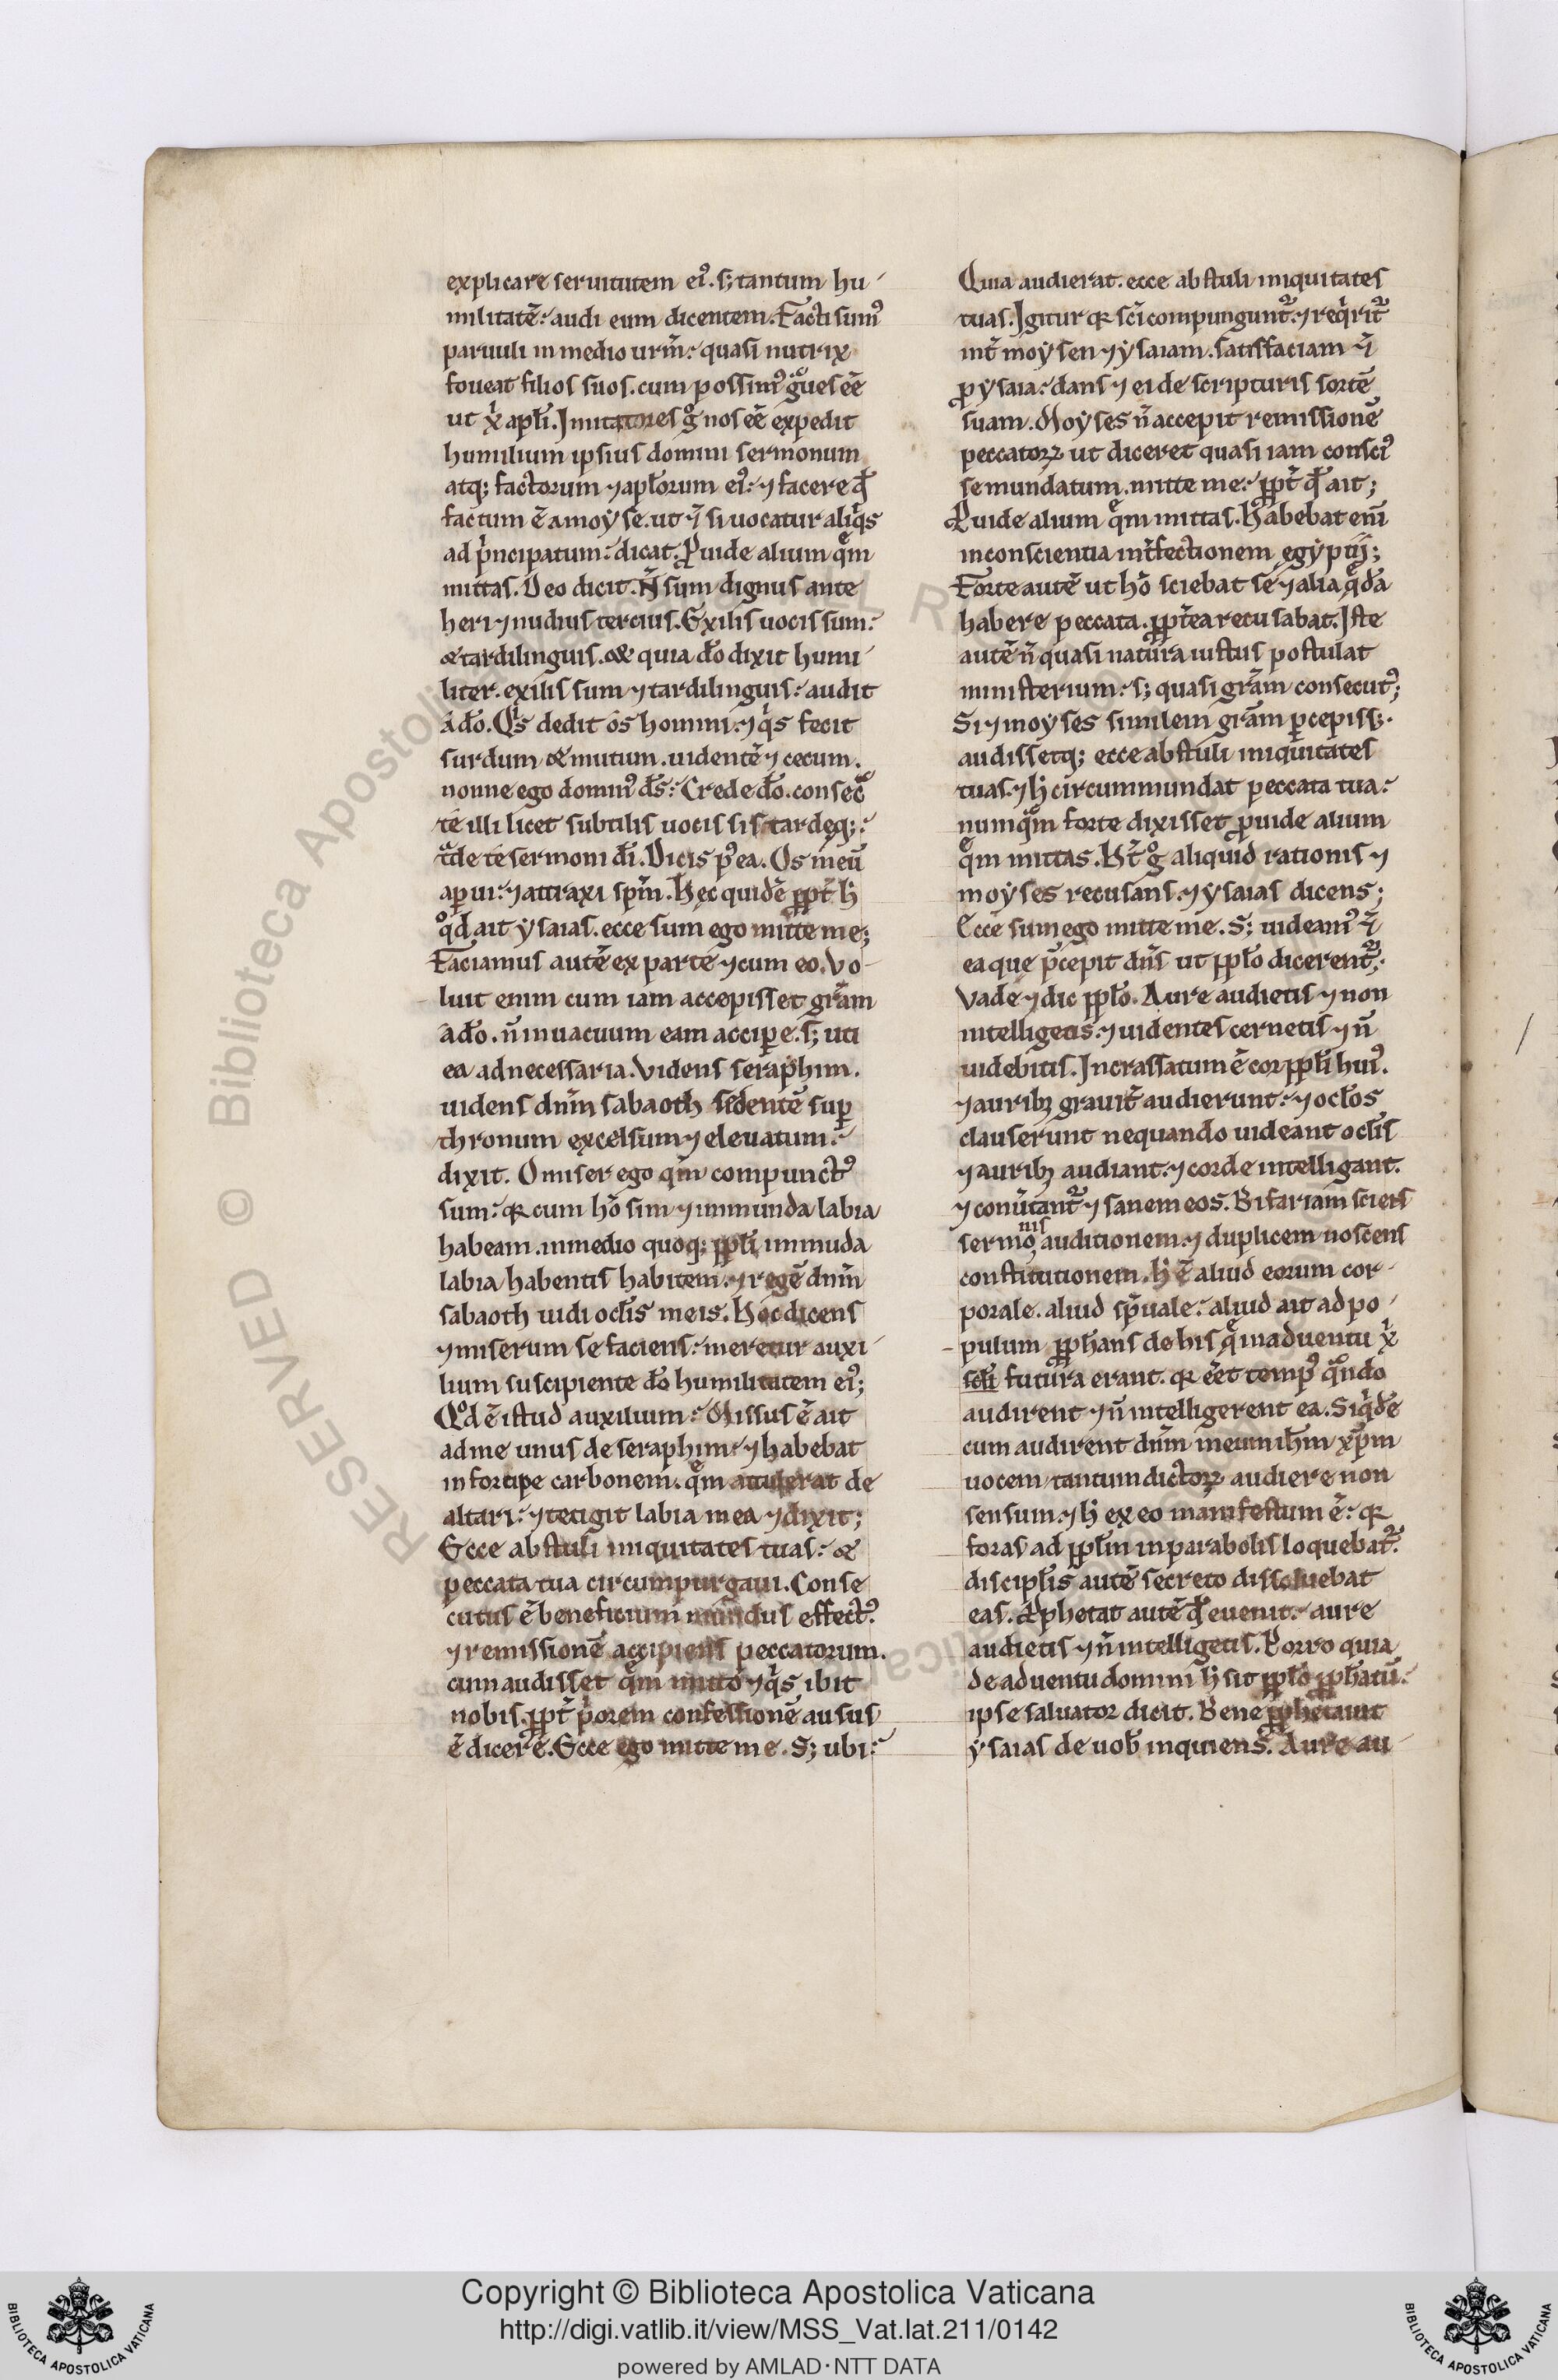 explicare seruitutem ei᷒. s; tantum hu-
militatē: audi eum dicentem. Facti sum᷒
paruuli in medio ur̄m: quasi nutrix
foueat filios suos. cum possim᷒ gͦues eē
ut x̄ꝰ apłi. Imitatores gͦ nos eē expedit
humilium ipsius domini sermonum
atq; factorum ⁊ apłorum ei᷒: ⁊ facere qđ
factum ē a moẏse. ut ⁊̄ si uocatur aliqͥs
ad pͥncipatum: dicat. Ꝓuide alium quē̄m
mittas. Deo dicit. N̄ sum dignus ante
heri ⁊ nudius tercius. Exilis uocis sum:
& tardilinguis. & quia dō dixit humi-
liter. exilis sum ⁊ tardilinguis: audit
a dō. Qͥs dedit os homini: ⁊ qͥs fecit
surdum & mutum. uidentē ⁊ cecum.
nonne ego domin᷒ ds̄: Crede dō. consecͣ
te illi licet subtilis uocis sis tardeq;:
tͣde te sermoni dī. Dicis pꝰea. Os meū
aꝑui: ⁊ attraxi spm̄. Hęc quidē ꝓpt̄ h̄
qͦd ait ẏsaias. ecce sum ego mitte me;
Faciamus autē ex parte ⁊ cum eo. Vo-
luit enim cum iam accepisset grām
a dō. n̄ in uacuum eam acciꝑe. s; uti
ea ad necessaria. Videns seraphim.
uidens dnm̄ sabaoth sedentē suꝑ
thronum excelsum ⁊ eleuatum:
dixit. O miser ego qm̄ compunct᷒
sum: qꝛ cum hō sim ⁊ immunda labia
habeam. in medio quoq; ppłi immuda
labia habentis habitem: ⁊ regē dnm̄
sabaoth uidi ocłis meis. Hoc dicens
⁊ miserum se faciens: meretur auxi-
lium suscipiente dō humilitatem ei᷒;
Qͦd ē istud auxilium: Missus ē ait
ad me unus de seraphim: ⁊ habebat
in forcipe carbonem. quē̄m attulerat de
altari: ⁊ tetigit labia mea ⁊ dixit;
Ecce abstuli iniquitates tuas: &
peccata tua circumpurgaui. Conse
cutus ē beneficium mundus effect᷒.
⁊ remissionē accipiens peccatorum.
cum audisset quē̄m mittō ⁊ qͥs ibit
nobis. ꝓpt̄ pͥorem confessionē ausus
ē dicere. Ecce ego mitte me. S; ubi:
Quia audierat. ecce abstuli iniquitates
tuas. Igitur qꝛ scī compungunt᷑. ⁊ reqͥrit᷑
int̄ moẏsen ⁊ ẏsaiam. satisfaciam ⁊̄
ꝓ ẏsaia: dans ⁊ ei de scripturis sortē
suam. Moẏses n̄ accepit remissionē
peccatoꝝ ut diceret quasi iam consci᷒
se mundatum. mitte me: ꝓpt̄ qđ ait;
Ꝓuide alium quē̄m mittas. Habebat enī
in conscientia int̄fectionem ęgẏptij;
Forte autē ut hō sciebat se ⁊ alia quędā
habere peccata. ꝓpt̄ea recusabat. Iste
autē n̄ quasi natura iustus postulat
ministerium: s; quasi grām consecut᷒;
Si ⁊ moẏses similem grām ꝑcepiss;.
audissetq; ecce abstuli iniquitates
tuas. ⁊ h̄ circummundat peccata tua:
numqͣm forte dixisset ꝓuide alium
quē̄m mittas. Ht̄ gͦ aliquid rationis ⁊
moẏses recusans. ⁊ ẏsaias dicens;
Ecce sum ego mitte me. S; uideam᷒ ⁊̄
ea que p̄cepit dn̄s ut ppło dicerent᷑;
Vade ⁊ dic ppło. Aure audietis ⁊ non
intelligetis: ⁊ uidentes cernetis ⁊ n̄
uidebitis. Incrassatum ē cor ppłi hui᷒.
⁊ auribꝫ grauit̄ audierunt: ⁊ ocłos
clauserunt nequando uideant ocłis
⁊ auribꝫ audiant. ⁊ corde intelligant.
⁊ conūtant᷑ ⁊ sanem eos. Bifariam sciens
sermonis auditionem. ⁊ duplicem noscens
constitutionem. h̄ ē aliud eorum cor-
porale. aliud spūale: aliud ait ad po-
pulum ꝓphans de his quę in aduentu x̄ꝰ
scłi futura erant. qꝛ eēt temp᷒ qͣndo
audirent ⁊ n̄ intelligerent ea. Siqͥdē
cum audirent dnm̄ meum ihm̄ xpm̄
uocem tantum dictoꝝ audiere non
sensum: ⁊ h̄ ex eo manifestum ē: qꝛ
foras ad ppłm in parabolis loquebat᷑.
discipłis autē secreto dissoluebat
eas. Ꝓphetat autē qđ euenit: aure
audietis ⁊ n̄ intelligetis. Porro quia
de aduentu domini h̄ sit ppło ꝓphatū:
ipse saluator dicit. Bene ꝓphetauit
ẏsaias de uob̄ inquiens. Aure au-
RESERVED © Biblioteca Apostolica
Copyright © Biblioteca Apostolica Vaticana
http://digi.vatlib.it/view/MSS_Vat.lat.211/0142
powered by AMLAD·NTT DATA
BIBLIOTECA APOSTOLICA VATICANA
BIBLIOTECA APOSTOLICA VATICANA